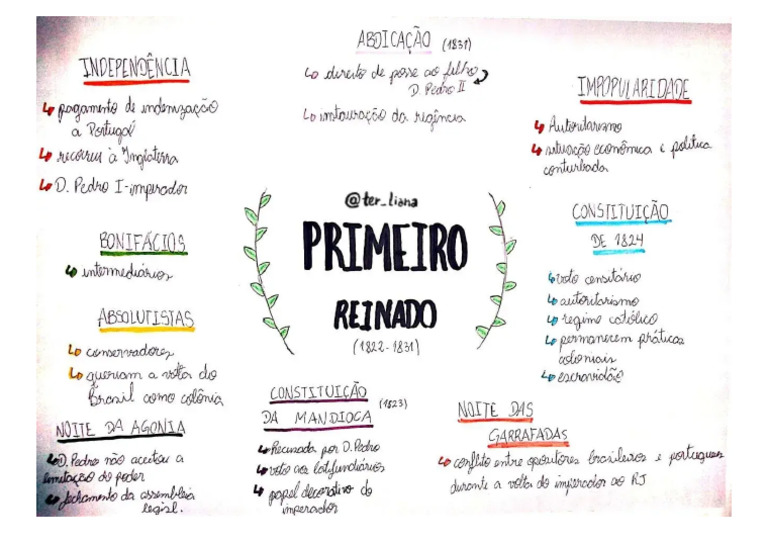 INDEPENDÊNCIA
↳ pagamento de indenização
a Portugal
↳ recorreu à Inglaterra
↳ D. Pedro I - imperador
ABDICAÇÃO (1831)
↳ direito de posse ao filho
D. Pedro II
↳ instauração da regência
IMPOPULARIDADE
↳ Autoritarismo
↳ situação econômica e política
conturbada
@ter_liana
PRIMEIRO
REINADO
(1822-1831)
BONIFÁCIOS
↳ intermediários
ABSOLUTISTAS
↳ conservadores
↳ queriam a volta do
Brasil como colônia
CONSTITUIÇÃO
DE 1824
↳ voto censitário
↳ autoritarismo
↳ regime católico
↳ permanecem práticas
coloniais
↳ escravidão
NOITE DA AGONIA
↳ D. Pedro não aceitou a
limitação do poder
↳ fechamento da assembleia
legisl.
CONSTITUIÇÃO
DA MANDIOCA (1823)
↳ Recusada por D. Pedro
↳ voto aos latifundiários
↳ papel decorativo do
imperador
NOITE DAS
GARRAFADAS
↳ conflito entre opositores brasileiros e portugueses
durante a volta do imperador ao RJ